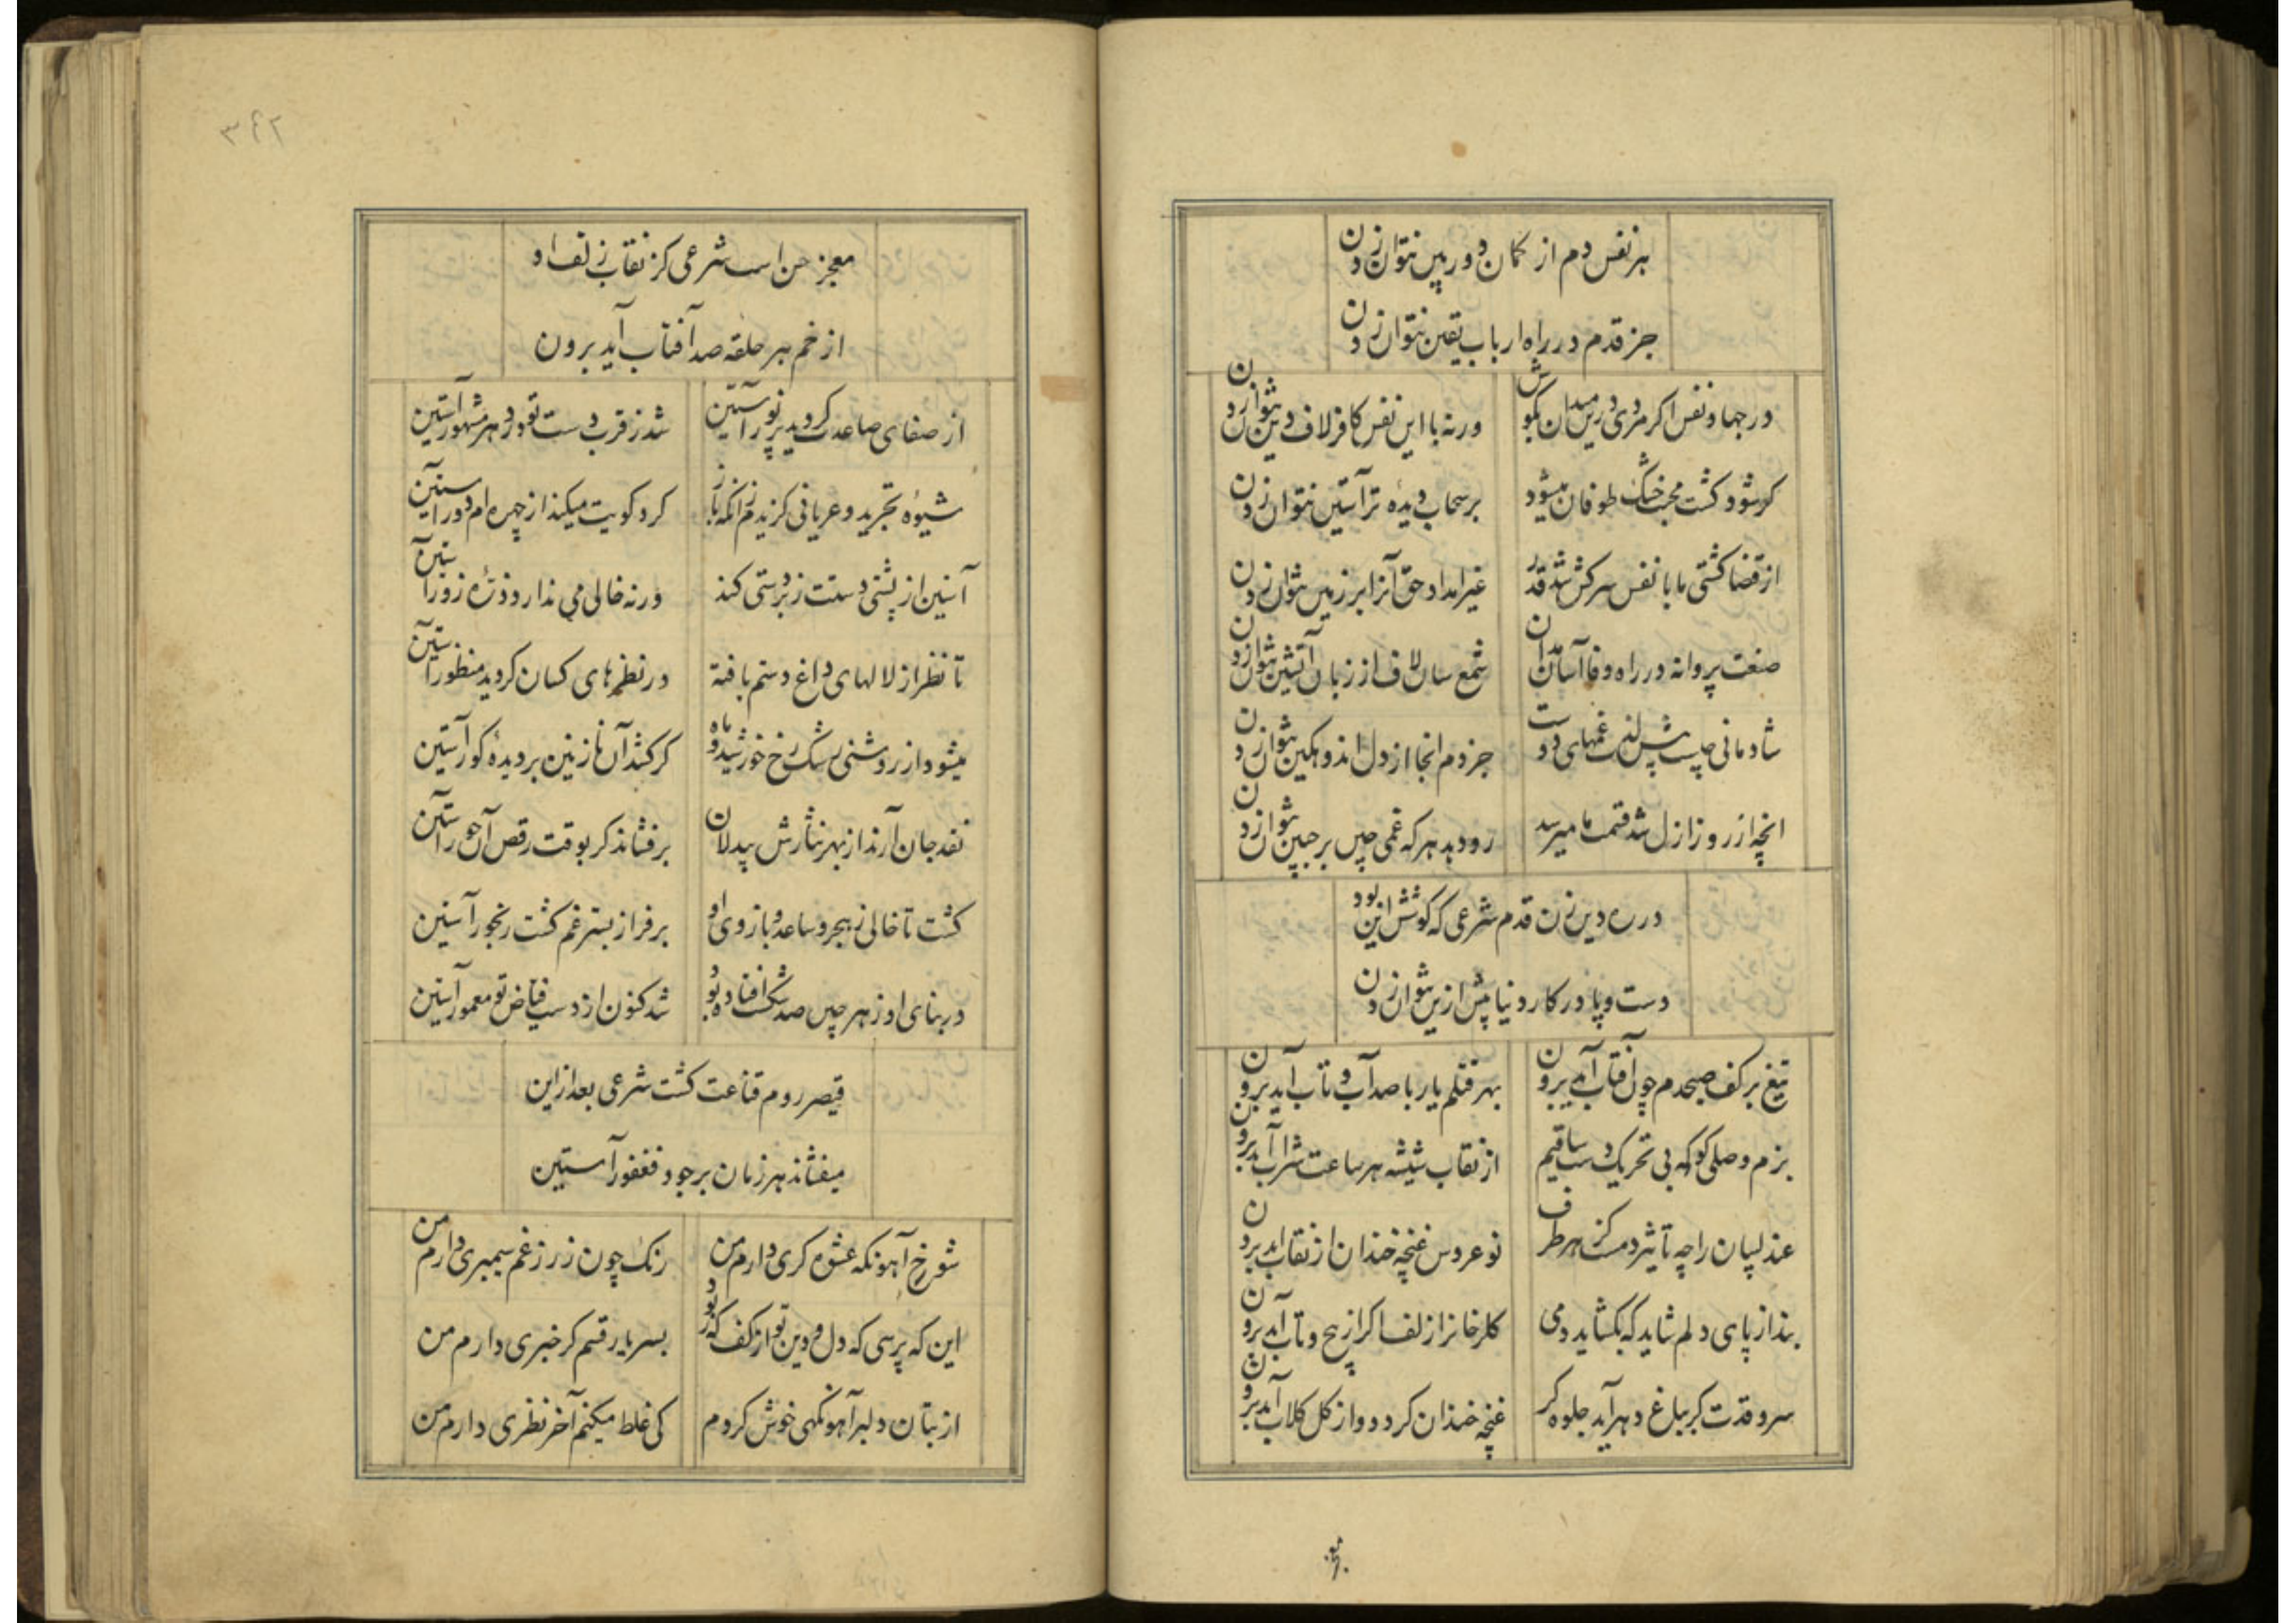 هر نفس دم از کمان دوربین نتوان زدن
جز قدم در راه ارباب یقین نتوان زدن
در جهاد نفس اکر مردی درین میدان بکوش
ورنه با این نفس کافر لاف دین نتوان زدن
کر شود کشت محبت خشک طوفان میشود
بر سحاب دیدهٔ تر آستین نتوان زدن
از قضا کشتی ما با نفس سرکش شد قدر
غیر امداد حق آنرا بر زمین نتوان زدن
صنعت پروانه در راه وفا آسان مدان
شمع سان لاف از زبان آتشین نتوان زدن
شادمانی چیست پیش لذت غمهای دوست
جز دم انجا از دل اندوهکین نتوان زدن
انچه از روز ازل شد قسمت ما میرسد
رو دهد هر که غمی چین بر جبین نتوان زدن
در ره دین زن قدم شرعی که کوشش این بود
دست و پا در کار دنیا بیش ازین نتوان زدن
تیغ بر کف صبحدم چون آفتاب آید برون
بهر قتلم یار با صد آب و تاب آید برون
بزم وصلی کو که بی تحریک دست ساقیم
از نقاب شیشه هر ساعت شراب آید برون
عندلیبان را چه تأثیر دمست کز هر طرف
نو عروس غنچه خندان از نقاب اید برون
بند از پای دلم شاید که بکشاید دمی
کلرخانرا زلف اکر از پیچ و تاب آید برون
سرو قدت کر بباغ دهر آید جلوه کر
غنچه خندان کردد و از کل کلاب آید برون
معجز
۳۶۲
معجز حسن است شرعی کز نقاب زلف او
از خم هر حلقه صد آفتاب آید برون
از صفای ساعدت کردید پر نور آستین
شد ز قرب دست تو در دهر مشهور آستین
شیوهٔ تجرید و عریانی کزیدم زانکه باز
کرد کویت میکند از چهره ام دور آستین
آستین از پشتی دستت زبردستی کند
ورنه خالی می ندارد ذرهٔ زور آستین
تا نظر از لالهای داغ دستم یافته
در نظرهای کسان کردید منظور آستین
میشود از روشنی رشک رخ خورشید و ماه
کر کشد آن نازنین بر دیدهٔ کور آستین
نقد جان آرند از بهر نثارش بیدلان
برفشاند کر بوقت رقص آن حور آستین
کشت تا خالی ز هجر و ساعد و بازوی او
بر فراز بستر غم کشت رنجور آستین
در بنای او ز هر چین صد شکست افتاده بود
شد کنون از دست فیاض تو معمور آستین
قیصر روم قناعت کشت شرعی بعد ازین
میفشاند هر زمان بر جود فغفور آستین
شوخ آهو نکه عشوه کری دارم من
رنک چون زر ز غم سیمبری دارم من
این که پرسی که دل و دین تو از کف که ربود
بسر یار قسم کر خبری دارم من
از بتان دلبر آهو نکهی خوش کردم
کی غلط میکنم آخر نظری دارم من